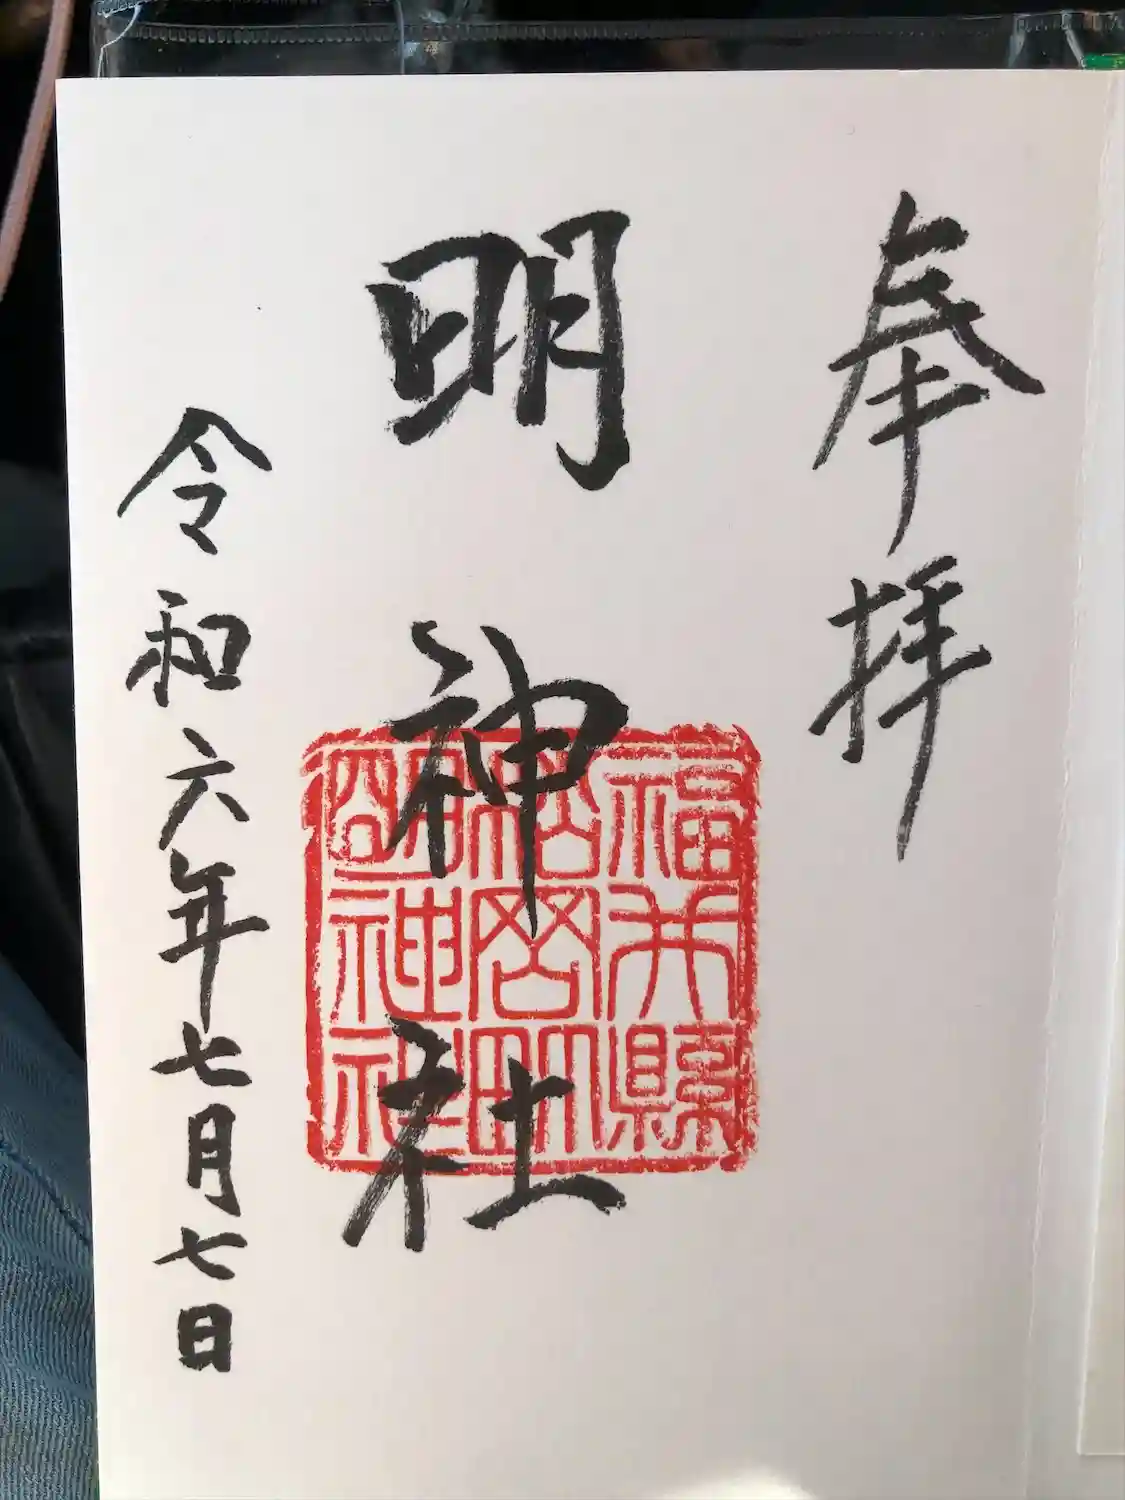 奉拝
明神社
福井縣
明神社
令和六年七月七日